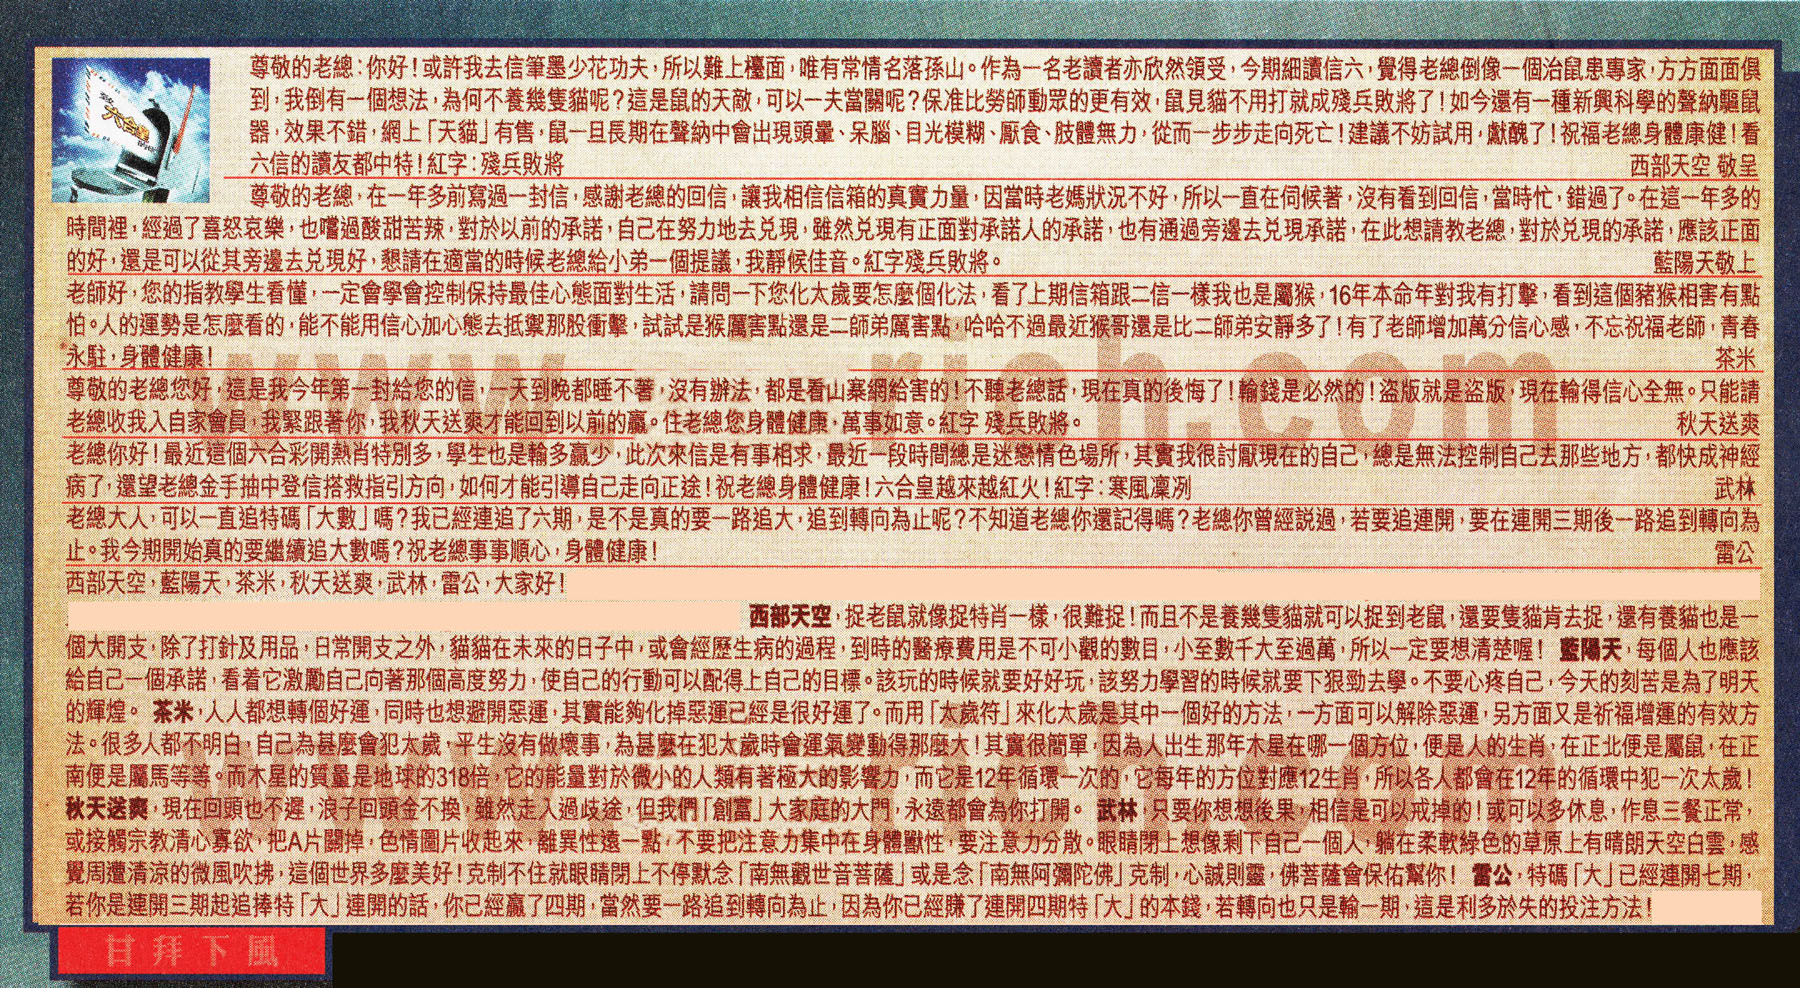 尊敬的老總：你好！或許我去信筆墨少花功夫，所以難上檯面，唯有常情名落孫山。作為一名老讀者亦欣然領受，今期細讀信六，覺得老總倒像一個治鼠患專家，方方面面俱
到，我倒有一個想法，為何不養幾隻貓呢？這是鼠的天敵，可以一夫當關呢？保准比勞師動眾的更有效，鼠見貓不用打就成殘兵敗將了！如今還有一種新興科學的聲納驅鼠
器，效果不錯，網上「天貓」有售，鼠一旦長期在聲納中會出現頭暈、呆腦、目光模糊、厭食、肢體無力，從而一步步走向死亡！建議不妨試用，獻醜了！祝福老總身體康健！看
六信的讀友都中特！紅字：殘兵敗將 西部天空 敬呈
尊敬的老總，在一年多前寫過一封信，感謝老總的回信，讓我相信信箱的真實力量，因當時老媽狀況不好，所以一直在伺候著，沒有看到回信，當時忙，錯過了。在這一年多的
時間裡，經過了喜怒哀樂，也嚐過酸甜苦辣，對於以前的承諾，自己在努力地去兌現，雖然兌現有正面對承諾人的承諾，也有通過旁邊去兌現承諾，在此想請教老總，對於兌現的承諾，應該正面
的好，還是可以從其旁邊去兌現好，懇請在適當的時候老總給小弟一個提議，我靜候佳音。紅字殘兵敗將。 藍陽天敬上
老師好，您的指教學生看懂，一定會學會控制保持最佳心態面對生活，請問一下您化太歲要怎麼個化法，看了上期信箱跟二信一樣我也是屬猴，16年本命年對我有打擊，看到這個豬猴相害有點
怕。人的運勢是怎麼看的，能不能用信心加心態去抵禦那股衝擊，試試是猴厲害點還是二師弟厲害點，哈哈不過最近猴哥還是比二師弟安靜多了！有了老師增加萬分信心感，不忘祝福老師，青春
永駐，身體健康！ 茶米
尊敬的老總您好，這是我今年第一封給您的信，一天到晚都睡不著，沒有辦法，都是看山寨網給害的！不聽老總話，現在真的後悔了！輸錢是必然的！盜版就是盜版，現在輸得信心全無。只能請
老總收我入自家會員，我緊跟著你，我秋天送爽才能回到以前的贏。住老總您身體健康，萬事如意。紅字 殘兵敗將。 秋天送爽
老總你好！最近這個六合彩開熱肖特別多，學生也是輸多贏少，此次來信是有事相求，最近一段時間總是迷戀情色場所，其實我很討厭現在的自己，總是無法控制自己去那些地方，都快成神經
病了，還望老總金手抽中登信搭救指引方向，如何才能引導自己走向正途！祝老總身體健康！六合皇越來越紅火！紅字：寒風凜冽 武林
老總大人，可以一直追特碼「大數」嗎？我已經連追了六期，是不是真的要一路追大，追到轉向為止呢？不知道老總你還記得嗎？老總你曾經説過，若要追連開，要在連開三期後一路追到轉向為
止。我今期開始真的要繼續追大數嗎？祝老總事事順心，身體健康！ 雷公
西部天空，藍陽天，茶米，秋天送爽，武林，雷公，大家好！
西部天空，捉老鼠就像捉特肖一樣，很難捉！而且不是養幾隻貓就可以捉到老鼠，還要隻貓肯去捉，還有養貓也是一
個大開支，除了打針及用品，日常開支之外，貓貓在未來的日子中，或會經歷生病的過程，到時的醫療費用是不可小觀的數目，小至數千大至過萬，所以一定要想清楚喔！ 藍陽天，每個人也應該
給自己一個承諾，看着它激勵自己向著那個高度努力，使自己的行動可以配得上自己的目標。該玩的時候就要好好玩，該努力學習的時候就要下狠勁去學。不要心疼自己，今天的刻苦是為了明天
的輝煌。 茶米，人人都想轉個好運，同時也想避開惡運，其實能夠化掉惡運已經是很好運了。而用「太歲符」來化太歲是其中一個好的方法，一方面可以解除惡運，另方面又是祈福增運的有效方
法。很多人都不明白，自己為甚麼會犯太歲，平生沒有做壞事，為甚麼在犯太歲時會運氣變動得那麼大！其實很簡單，因為人出生那年木星在哪一個方位，便是人的生肖，在正北便是屬鼠，在正
南便是屬馬等等。而木星的質量是地球的318倍，它的能量對於微小的人類有著極大的影響力，而它是12年循環一次的，它每年的方位對應12生肖，所以各人都會在12年的循環中犯一次太歲！
秋天送爽，現在回頭也不遲，浪子回頭金不換，雖然走入過歧途，但我們「創富」大家庭的大門，永遠都會為你打開。 武林，只要你想想後果，相信是可以戒掉的！或可以多休息，作息三餐正常，
或接觸宗教清心寡欲，把A片關掉，色情圖片收起來，離異性遠一點，不要把注意力集中在身體獸性，要注意力分散。眼睛閉上想像剩下自己一個人，躺在柔軟綠色的草原上有晴朗天空白雲，感
覺周遭清涼的微風吹拂，這個世界多麼美好！克制不住就眼睛閉上不停默念「南無觀世音菩薩」或是念「南無阿彌陀佛」克制，心誠則靈，佛菩薩會保佑幫你！ 雷公，特碼「大」已經連開七期，
若你是連開三期起追捧特「大」連開的話，你已經贏了四期，當然要一路追到轉向為止，因為你已經賺了連開四期特「大」的本錢，若轉向也只是輸一期，這是利多於失的投注方法！
甘拜下風